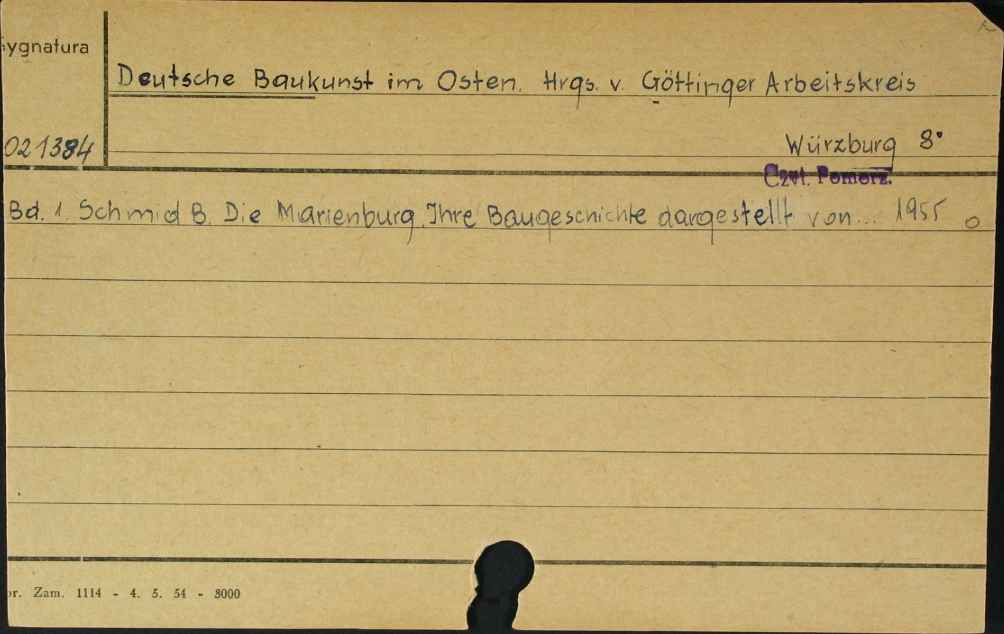 Sygnatura
Deutsche Baukunst im Osten. Hrgs. v. Göttinger Arbeitskreis
021384
Würzburg 8°
Czyt. Pomorz.
Bd. 1. Schmid B. Die Marienburg. Ihre Baugeschichte dargestellt von... 1955 o
or. Zam. 1114 - 4. 5. 54 - 8000